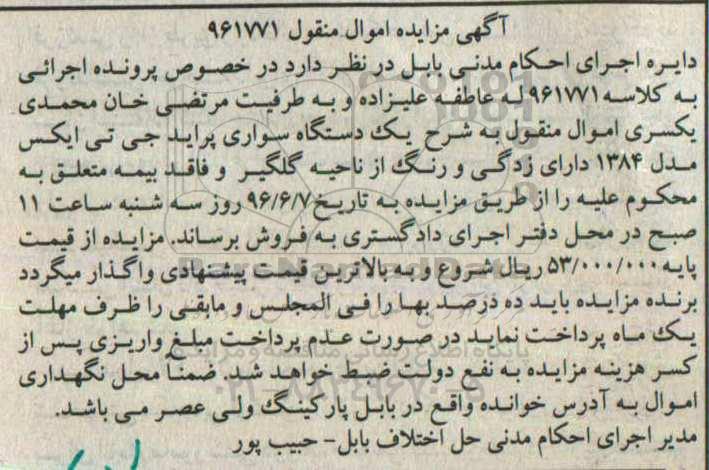 آگهی مزایده اموال منقول ۹۶۱۷۷۱
دایره اجرای احکام مدنی بابل در نظر دارد در خصوص پرونده اجرائی
به کلاسه ۹۶۱۷۷۱ له عاطفه علیزاده و به طرفیت مرتضی خان محمدی
یکسری اموال منقول به شرح یک دستگاه سواری پراید جی تی ایکس
مدل ۱۳۸۴ دارای زدگی و رنگ از ناحیه گلگیر و فاقد بیمه متعلق به
محکوم علیه را از طریق مزایده به تاریخ ۹۶/۶/۷ روز سه شنبه ساعت ۱۱
صبح در محل دفتر اجرای دادگستری به فروش برساند. مزایده از قیمت
پایه ۵۳/۰۰۰/۰۰۰ ریال شروع و به بالاترین قیمت پیشنهادی واگذار میگردد
برنده مزایده باید ده درصد بها را فی المجلس و مابقی را ظرف مهلت
یک ماه پرداخت نماید در صورت عدم پرداخت مبلغ واریزی پس از
کسر هزینه مزایده به نفع دولت ضبط خواهد شد. ضمناً محل نگهداری
اموال به آدرس خوانده واقع در بابل پارکینگ ولی عصر می باشد.
مدیر اجرای احکام مدنی حل اختلاف بابل- حبیب پور